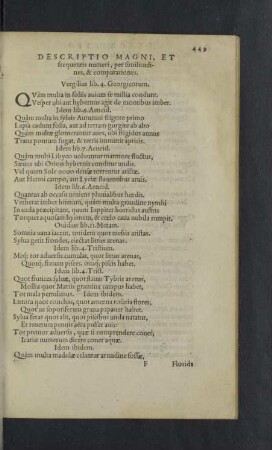 449
DESCRIPTIO MAGNI, ET
frequentis numeri, per similitudi-
nes, & comparationes.
Vergilius lib. 4. Georgicorum.
Quàm multa in foliis auium se millia condunt,
Vesper ubi aut hybernus agit de montibus imber.
Idem lib.6. Aeneid.
Quàm multa in syluis Autumni frigore primo
Lapsa cadunt folia, aut ad terram gurgite ab alto
Quàm multæ glomerantur aues, ubi frigidus annus
Trans pontum fugat, & terris immittit apricis.
Idem lib.7. Aeneid.
Quàm multi Libyco uoluuntur marmore fluctus,
Sæuus ubi Orion hybernis conditur undis.
Vel quum Sole nouo densæ torrentur aristæ,
Aut Hermi campo, aut Lyciæ flauentibus aruis.
Idem lib.9. Aeneid.
Quantus ab occasu ueniens pluuialibus hœdis,
Verberat imber humum, quàm multa grandine nymbi
In uada præcipitant, quum Iuppiter horridus austris
Torquet aquosam hyemem, & cœlo caua nubila rumpit.
Ouidius lib.11. Metam.
Somnia uana iacent, totidem quot messis aristas,
Sylua gerit frondes, eiectas littus arenas.
Idem lib.4. Tristium.
Mox; tot aduersis cumulat, quot litus arenas,
Quotq; fretum pisces, ouaq; piscis habet.
Idem lib.4. Trist.
Quot frutices syluæ, quot flauas Tybris arenas,
Mollia quot Martis gramina campus habet,
Tot mala pertulimus. Idem ibidem.
Littora quot conchas, quot amœna rosaria flores,
Quot'ue soporiferum grana papauer habet.
Sylua feras quot alit, quot piscibus unda natatur,
Et tenerum pennis aëra pulsat auis:
Tot premor aduersis, quæ si comprendere coner,
Icariæ numerum dicere coner aquæ.
Idem ibidem.
Quàm multa madidæ celantur arundine fossæ,
F Florida